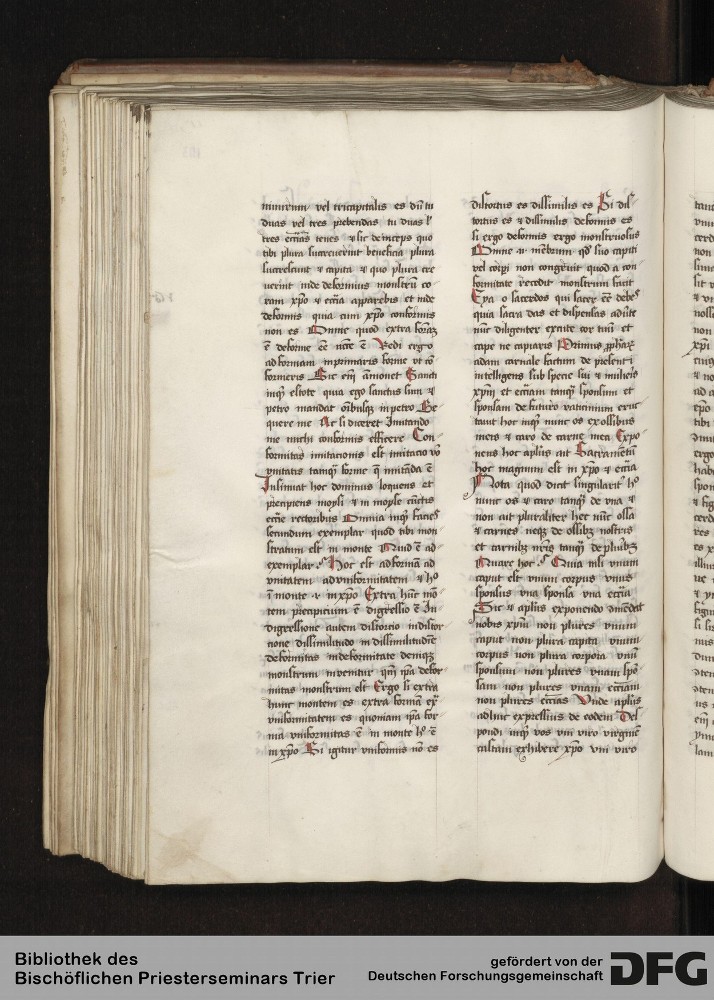 duas vel tres prebendas tu duas l'
tres ecc̄ias tenes ⁊ sic deinceps quo
tibi plura lucreuerint beneficia plura
lucrescunt ⁊ capita ⁊ quo plura cre
uerint inde deformius monstrū co
ram xp̄o ⁊ ecc̄ia apparebis et inde
deformis quia cum xp̄o conformis
non es Omne quod extra formā
ē deforme eē Redi ergo
ad formam inprimaris forme ut cō
formeris Sic eim̄ āmonet Sancti
inq̄ estote quia ego sanctus sum ⁊
petro mandat oībusq̄ in petro Se
quere me Ac si diceret Imitando
me michi conformis efficere Con
formitas imitacionis est imitacio vō
vnitatis tamq̄ forme q̄ imitāda ē
Insinuat hoc dominus loquens et
precipiens moysi ⁊ in moyse cūctis
ecc̄ie rectoribus Omnia inq̄ facies
secundum exemplar quod tibi mon
stratum est in monte Quid ē ad
exemplar Hoc est ad formā ad
vnitatem ad vniformitatem ⁊ h°
ī monte ⁊ in xp̄o Extra hūc mō
tem precipicium ē digressio ē In
digressione autem distorcio in distor
cione dissimilitudo in dissimilitudīe
deformitas in deformitate deniq̄
monstrum inuenitur qm̄ ip̄a defor
mitas monstrum est Ergo si extra
hunc montem es extra formā ex
vniformitatem es quoniam ip̄a for
ma vniformitas ē in monte h° ē
in xp̄o Si igitur vniformis nō es
distortus es dissimilis es Si dis
tortus es ⁊ dissimilis deformis es
si ergo deformis ergo monstruosus
Omne n̄ mēbrum qd̄ suo capiti
vel corpi non congruit quod a con
formitate recedit monstrum sonat
Eya o sacerdos qui sacer eē debes
quia sacra das et dispensas aduerte
nūc diligenter excute cor tuū et
cape ne capiaris Primus
adam carnale factum de presenti
intelligens sub specie sui ⁊ mulieris
xpm̄ et ecc̄iam tamq̄ sponsum et
sponsam de futuro vaticinium eruc
tauit hoc inq̄ nunc os ex ossibus
meis ⁊ caro de carne mea Expo
nens hoc aplūs ait Sacramētum
hoc magnum est in xp̄o ⁊ ecc̄ia
Nota quod dicit singularit' h°
nunc os ⁊ caro tamq̄ de vna ⁊
non ait pluraliter hec nūc ossa
⁊ carnes neq̄ de ossibꝫ nostris
et carnibꝫ nr̄is tamq̄ de pluribꝫ
Quare hoc Quia nisi vnum
caput est vnum corpus vnus
sponsus vna sponsa vna ecc̄ia
Sic ⁊ aplūs exponendo
nobis xpm̄ non plures vnum
caput non plura capita vnum
corpus non plura corpora vnū
sponsum non plures vnam spō
sam non plures vnam ecc̄iam
non plures ecc̄ias Vnde aplūs
adhuc expressius de eodem Des
pondi inq̄ vos vni viro virginē
castam exhibere xp̄o vni viro
Bibliothek des
Bischöflichen Priesterseminars Trier
gefördert von der
Deutschen Forschungsgemeinschaft
DFG